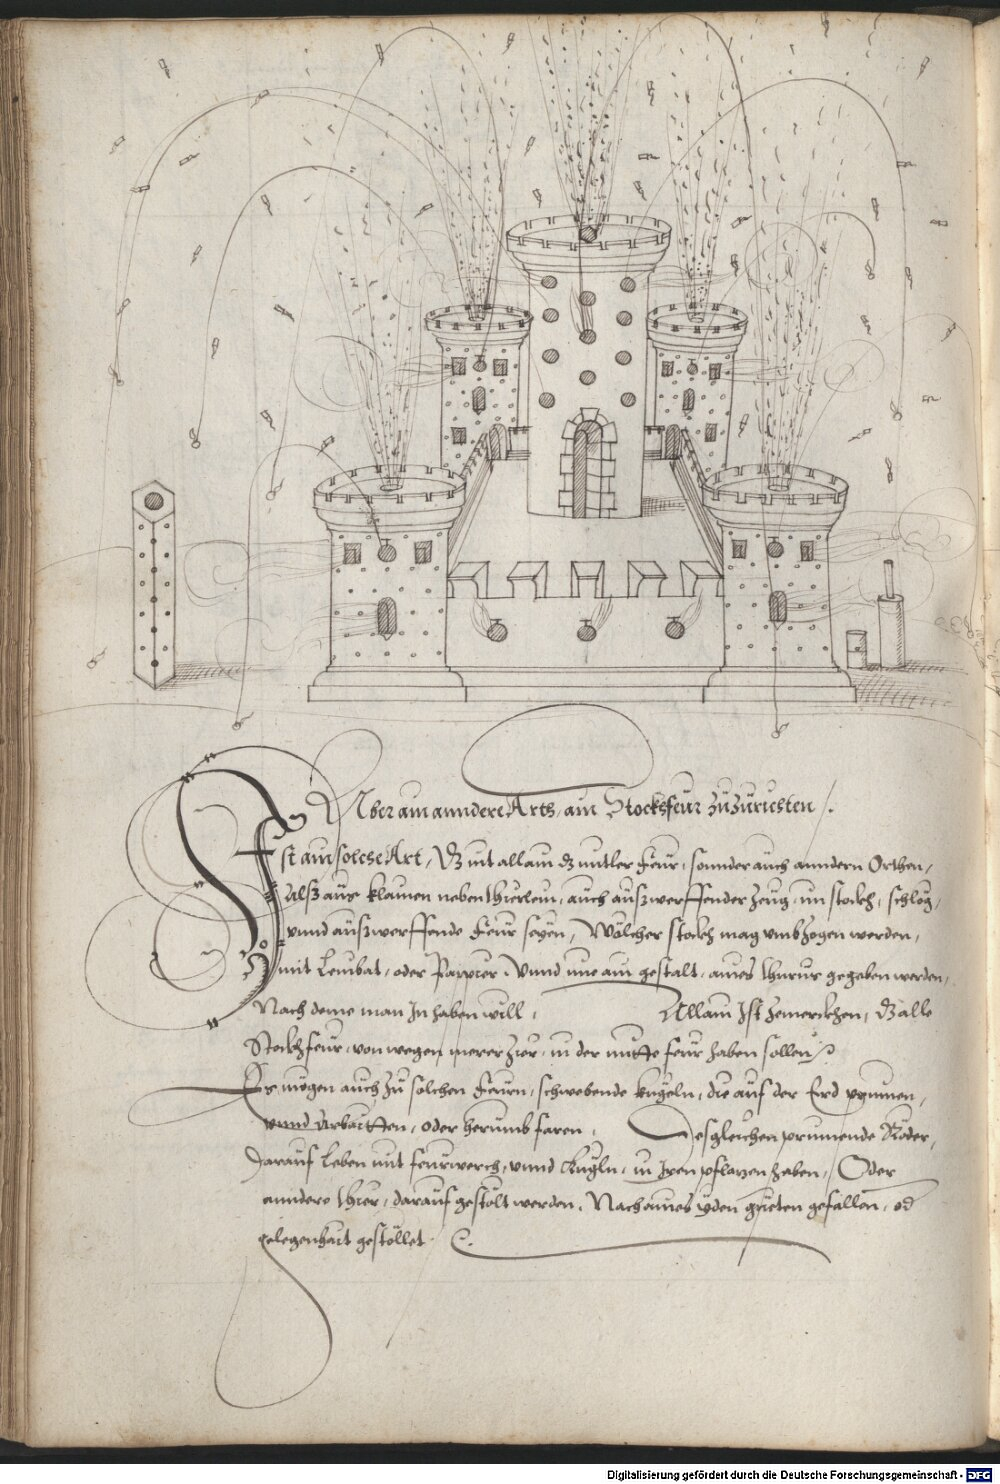 Aber ain anndere Arth, ain Stockhfeur zuzurichten /.
Ist ain solche Art, Dz nit allain dz mitler Feur, sonnder auch anndern Orthen,
Alß auß klainen neben thürlein, auch außwerffender zeug, im stockh, schlög,
vnnd außwerffende Feur seyen, Wölcher stockh mag vmbzogen werden,
mit Leinbat, oder Pappier, Vnnd ime ain gestalt, aines thurnr gegeben werden,
Nach deme man In haben will, Allain Ist zemerckhen, Dz alle
Stockhfeur, von wegen merer Zier, in der mitte feur haben sollen
Es mögen auch zu solchen Feurn, schwebende kuglen, die auf der Erd prinnen,
vnnd Arbaitten, oder herumb faren, Desgleichen prinnende Röder,
Darauf Leben mit feurwerch, vnnd Kugln, in Iren pflanzen haben, Oder
anndere thier, darauf gestölt werden, Nach aines yden guoten gefallen, od
gelegenhait gestöllet
Digitalisierung gefördert durch die Deutsche Forschungsgemeinschaft - DFG